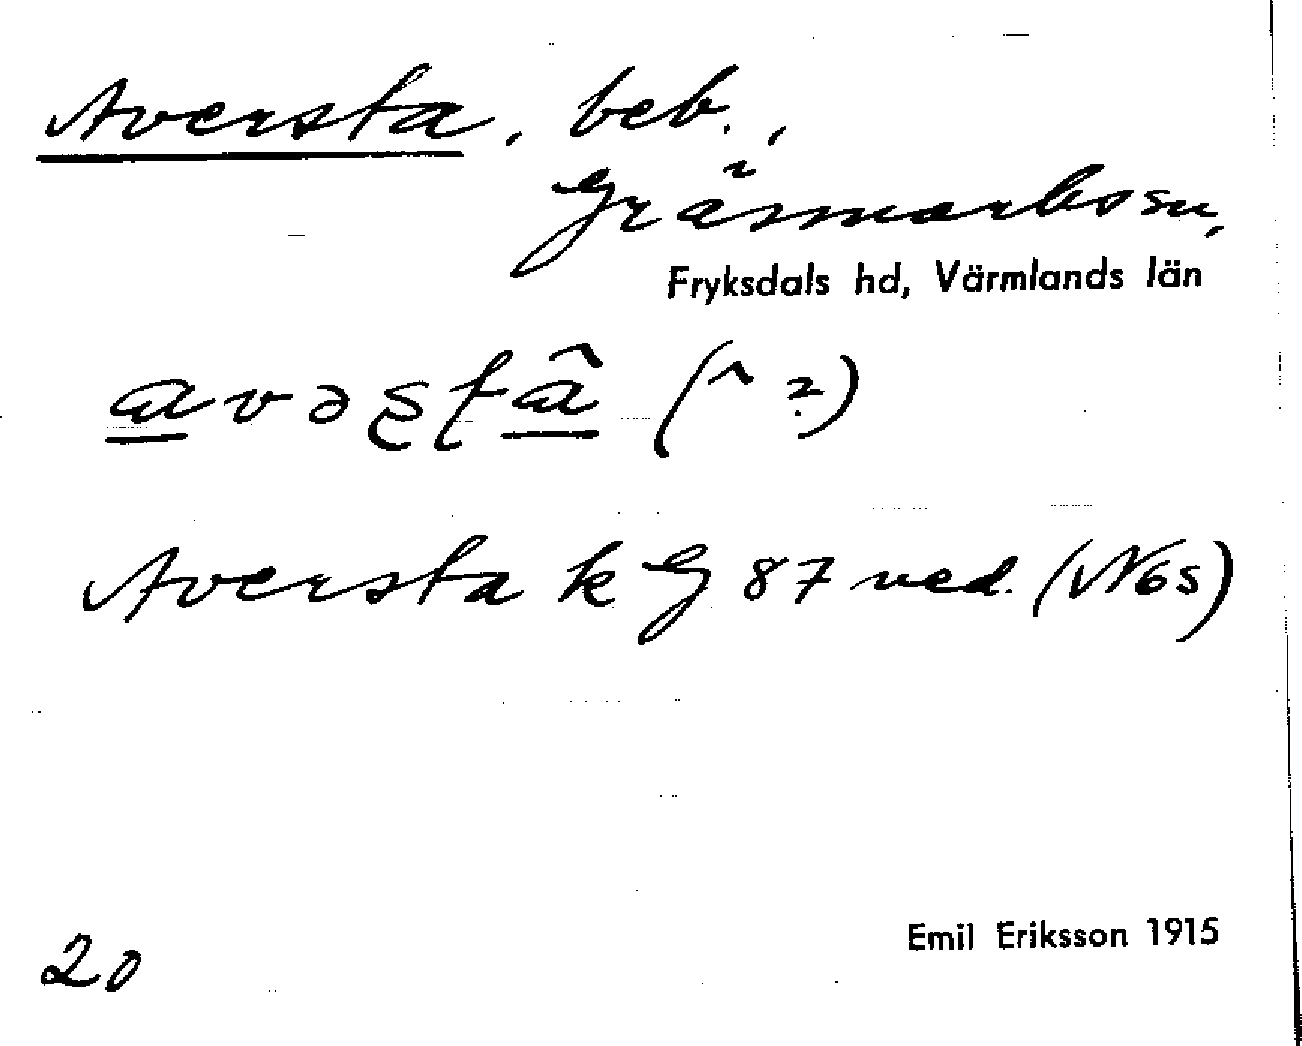 Aversta, beb.,
Gräsmarks sn,
Fryksdals hd, Värmlands län
avəʂʈâ (^ 2)
Aversta k G 87 ned. (N 65)
20
Emil Eriksson 1915